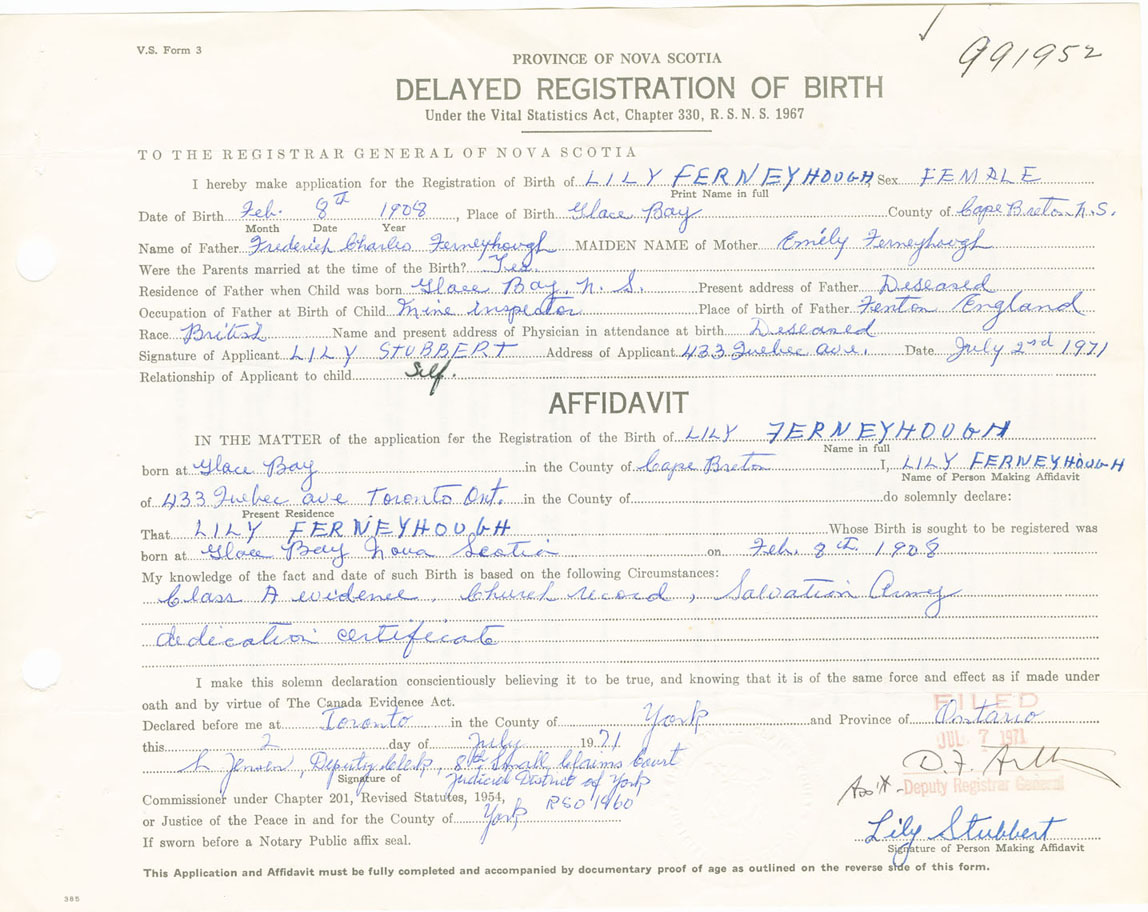 V.S. Form 3
991952
PROVINCE OF NOVA SCOTIA
DELAYED REGISTRATION OF BIRTH
Under the Vital Statistics Act, Chapter 330, R.S.N.S. 1967
TO THE REGISTRAR GENERAL OF NOVA SCOTIA
I hereby make application for the Registration of Birth of LILY FERNEYHOUGH Sex FEMALE
Print Name in full
Date of Birth Feb. 8th 1908, Place of Birth Glace Bay County of Cape Breton N.S.
Month Date Year
Name of Father Frederick Charles Ferneyhough MAIDEN NAME of Mother Emily Ferneyhough
Were the Parents married at the time of the Birth? Yes.
Residence of Father when Child was born Glace Bay, N. S. Present address of Father Deseased
Occupation of Father at Birth of Child Mine inspector Place of birth of Father Fenton England
Race British Name and present address of Physician in attendance at birth Deseased
Signature of Applicant LILY STUBBERT Address of Applicant 433 Quebec ave. Date July 2nd 1971
Relationship of Applicant to child Self.
AFFIDAVIT
IN THE MATTER of the application for the Registration of the Birth of LILY FERNEYHOUGH
Name in full
born at Glace Bay in the County of Cape Breton I, LILY FERNEYHOUGH
Name of Person Making Affidavit
of 433 Quebec ave Toronto Ont. in the County of do solemnly declare:
Present Residence
That LILY FERNEYHOUGH Whose Birth is sought to be registered was
born at Glace Bay Nova Scotia on Feb. 8th. 1908
My knowledge of the fact and date of such Birth is based on the following Circumstances:
Class A evidence, Church record, Salvation Army
dedication certificate
I make this solemn declaration conscientiously believing it to be true, and knowing that it is of the same force and effect as if made under
oath and by virtue of The Canada Evidence Act.
FILED
Declared before me at Toronto in the County of York and Province of Ontario
this 2 day of July 1971
JUL 7 1971
Jensen, Deputy Clerk, 8th Small Claims Court
Signature of Judicial District of York
Ass't - Deputy Registrar General
Commissioner under Chapter 201, Revised Statutes, 1954, RSO 1960
or Justice of the Peace in and for the County of York
Lily Stubbert
If sworn before a Notary Public affix seal.
Signature of Person Making Affidavit
This Application and Affidavit must be fully completed and accompanied by documentary proof of age as outlined on the reverse side of this form.
385